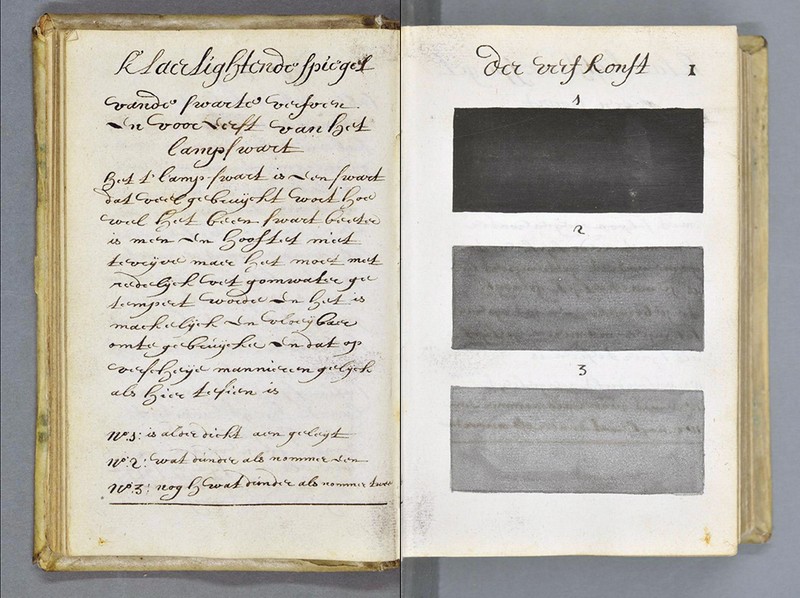 Klaerlightende spiegel
vande swarte verfven
En voor Eerst van het
lampswart
het t' lamp swart is Een swart
dat veel gebruijckt wort hoe
wel het been swart beeter
is men En hooftet niet
tevrijve maer het moet met
redelijck vet gomwater ge
tempert worde En het is
mackelijck En vloeijbaer
omte gebruijcke En dat op
verscheije mannieren gelijck
als hier tesien is
No 1: is alder dicht aen gelegt
No 2: wat dunder als nommer Een
No 3: nog h wat dunder als nommer twee
der verf Konst
1
1
2
3